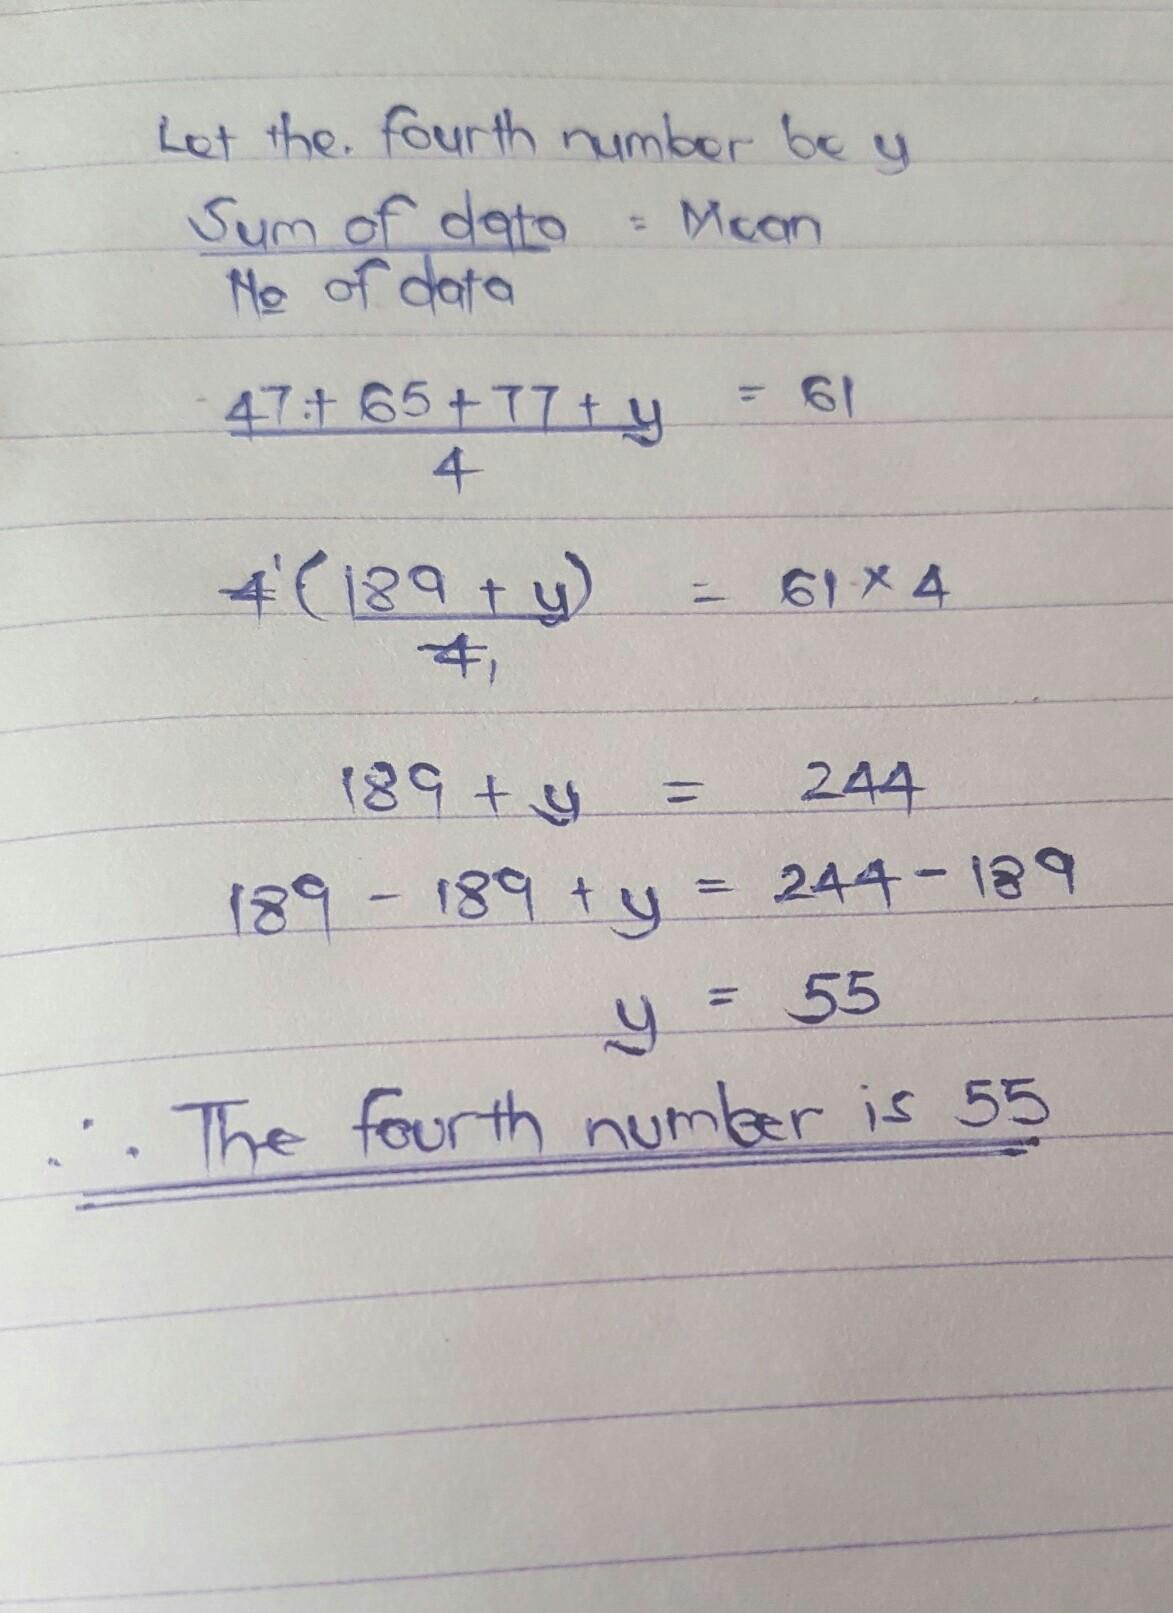 Let the. fourth number be y
Sum of data = Mean
No of data
47 + 65 + 77 + y = 61
4
4 1 (189 + y) = 61 × 4
4 1
189 + y = 244
189 - 189 + y = 244 - 189
y = 55
∴ The fourth number is 55